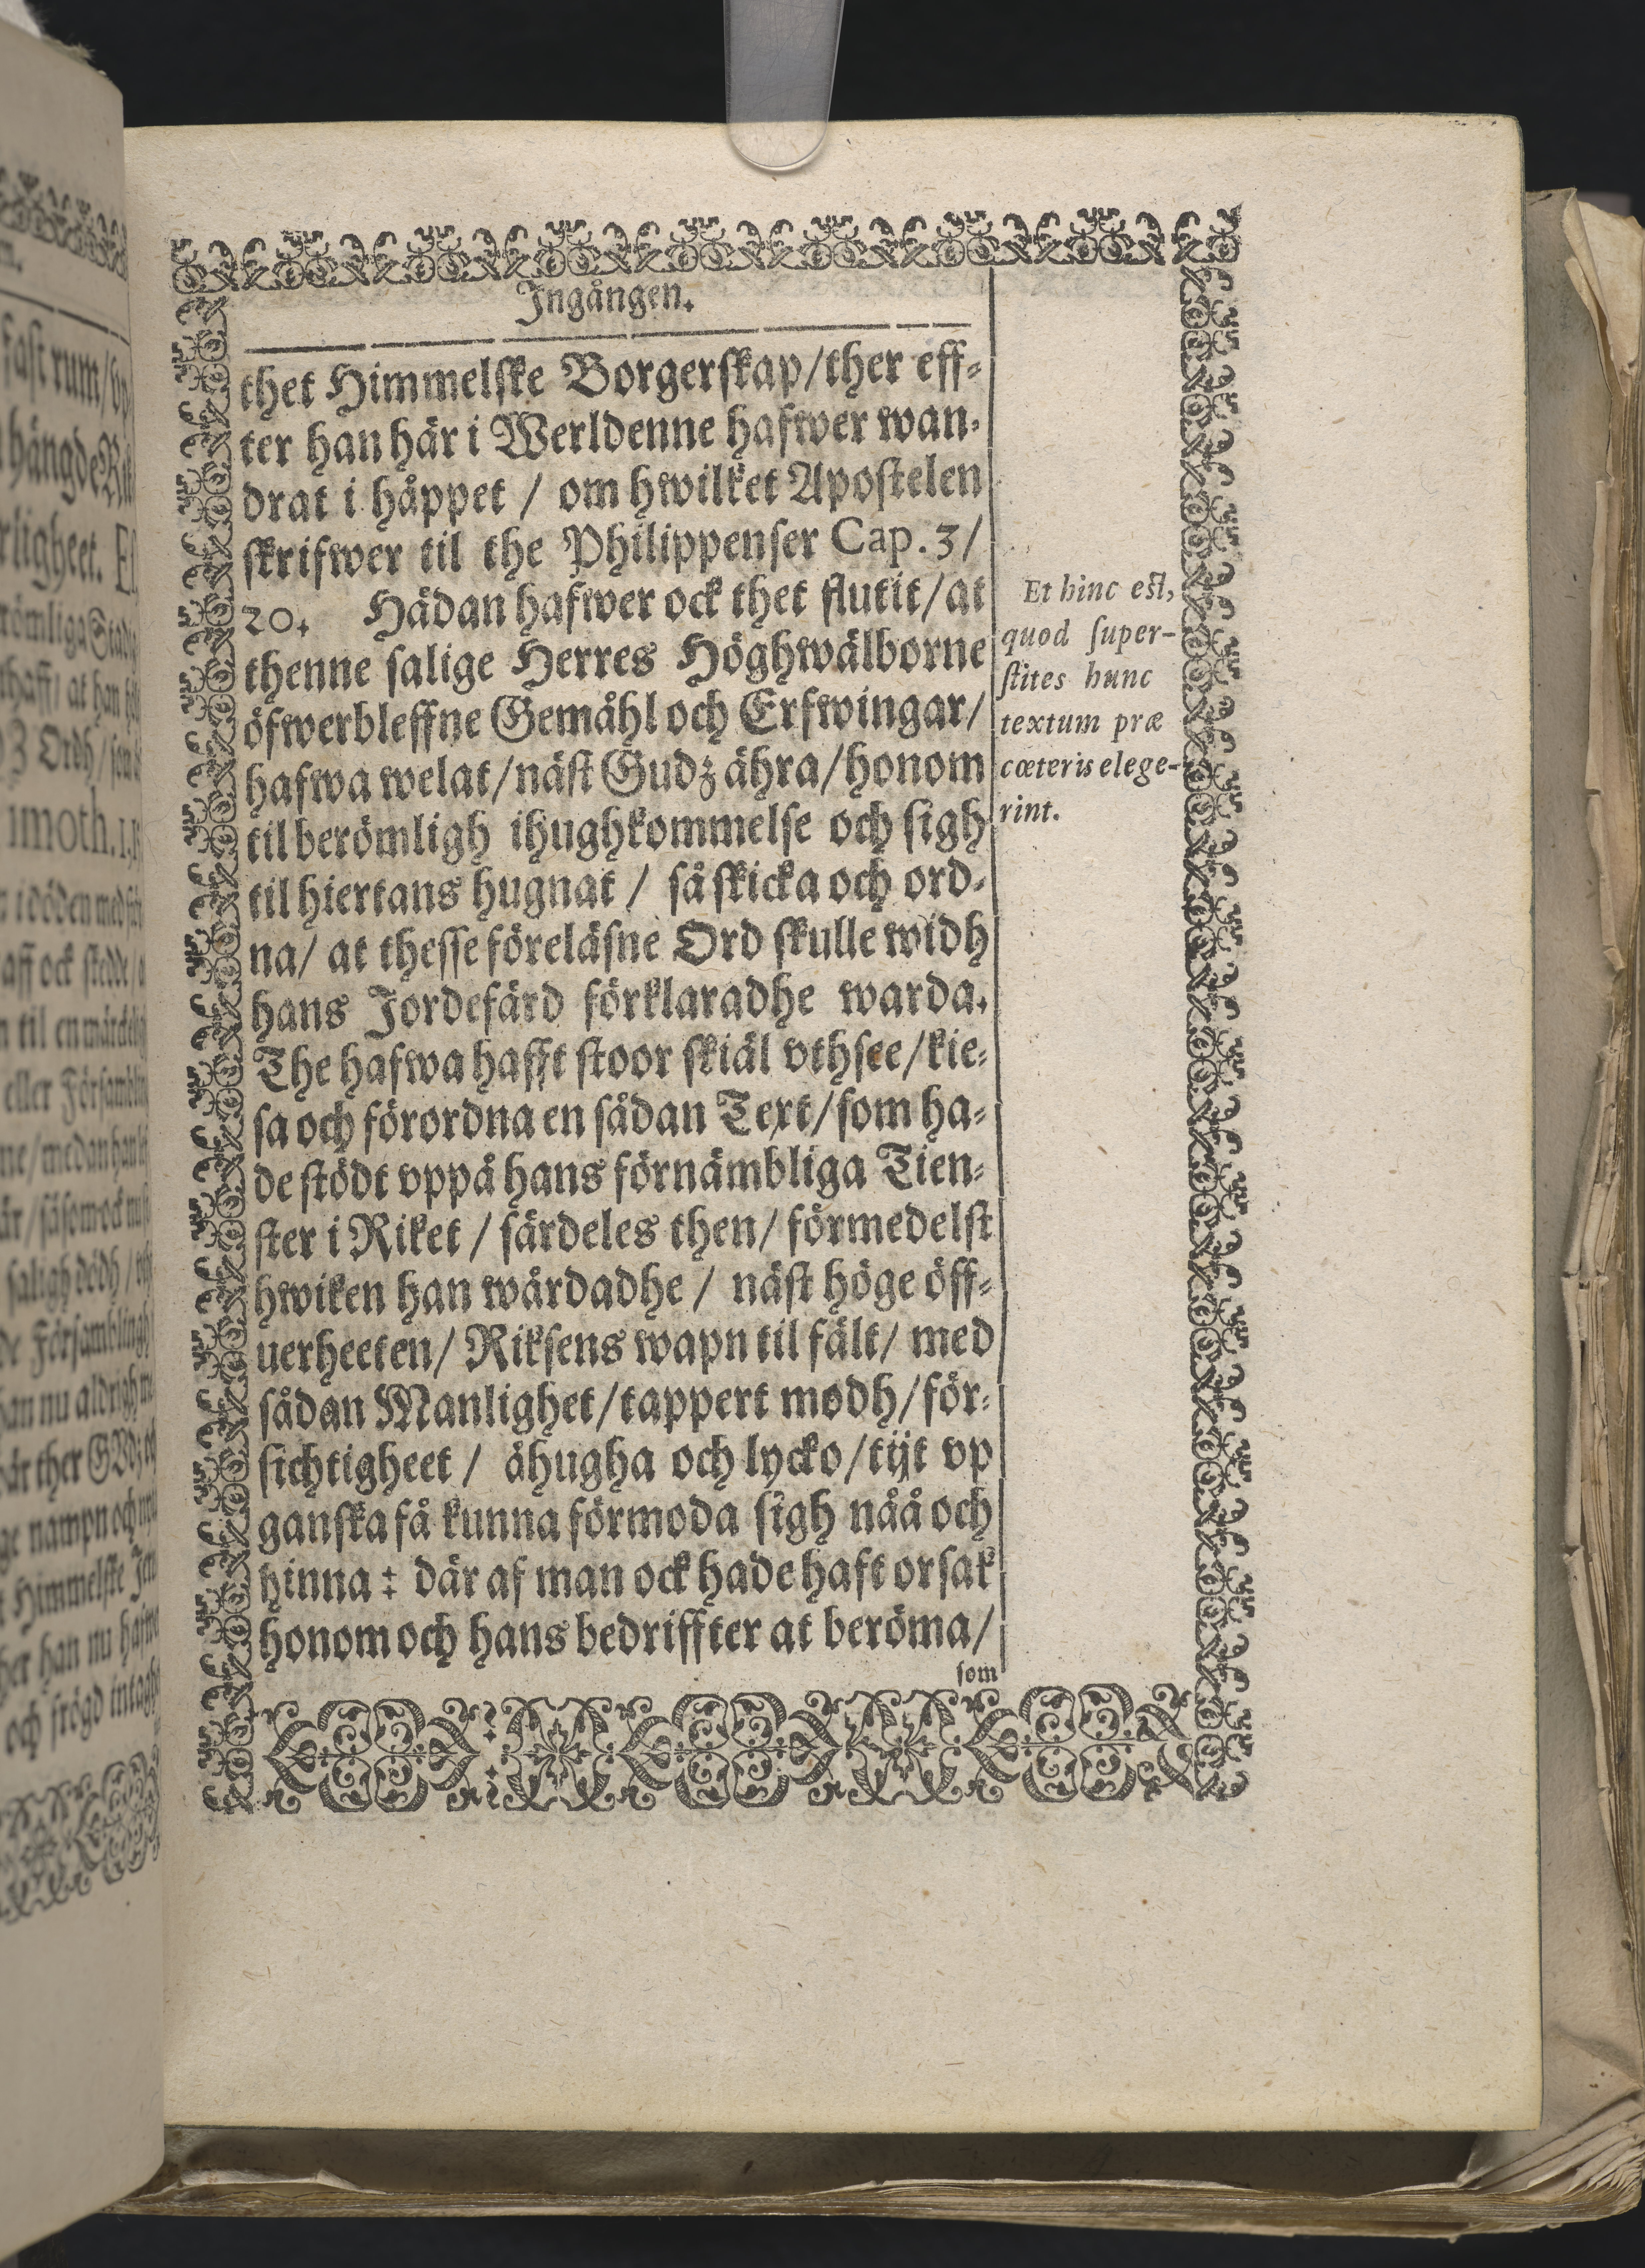 Ingången.
thet Himmelske Borgerskap/ther eff-
ter han här i Werldenne hafwer wan-
drat i håppet / om hwilket Apostelen
skrifwer til the Philippenser Cap. 3/
20. Hädan hafwer ock thet flutit/at
thenne salige Herres Höghwälborne
öfwerbleffne Gemåhl och Erfwingar/
hafwa welat/näst Gudz ähra/honom
til berömligh ihughkommelse och sigh
til hiertans hugnat / så skicka och ord-
na/ at thesse föreläsne Ord skulle widh
hans Jordefärd förklaradhe warda.
The hafwa hafft stoor skiäl vthsee/kie-
sa och förordna en sådan Text/som ha-
de stödt vppå hans förnämbliga Tien-
ster i Riket / särdeles then/ förmedelst
hwiken han wårdadhe / näst höge öff-
uerheeten/ Riksens wapn til fält/ med
sådan Manlighet/tappert modh/för-
sichtigheet / åhugha och lycko/tijt vp
ganska få kunna förmoda sigh nåå och
hinna : där af man ock hade haft orsak
honom och hans bedriffter at beröma/
som
Et hinc est,
quod super-
stites hunc
textum præ
cœteris elege-
rint.
fast rum/
hängde
rligheet.
römliga
thaff/ at han
Ordh/
imoth. 1.
i döden med
aff ock stedde
til en
eller Försambl
ne/medan han
saligh dödh
Försambligh
an nu aldrigh
är ther
ge nampn och
Himmelske
her han nu
och frögd intagh